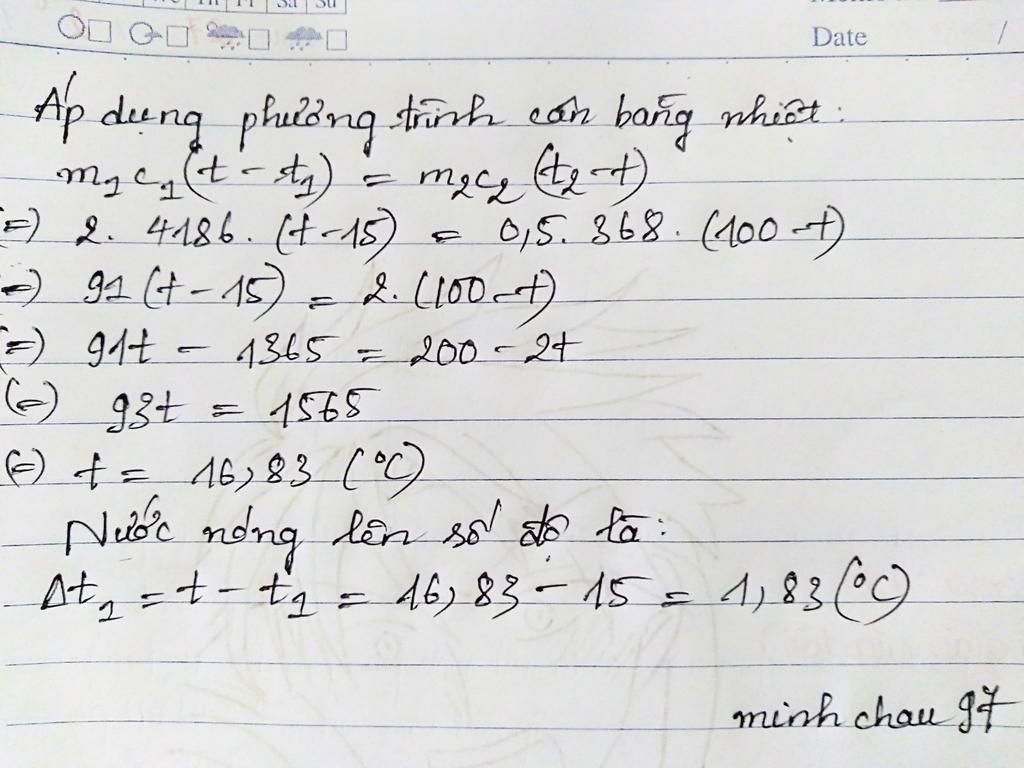 Sa Su
Date /
Áp dụng phương trình cân bằng nhiệt:
m₁c₁(t - t₁) = m₂c₂(t₂-t)
(=) 2. 4186. (t-15) = 0,5. 368. (100-t)
(=) 91(t-15) = 2. (100-t)
(=) 91t - 1365 = 200 - 2t
(=) 93t = 1565
(=) t = 16,83 (°C)
Nước nóng lên số độ là:
Δt₁ = t - t₁ = 16,83 - 15 = 1,83(°C)
minh chau 97